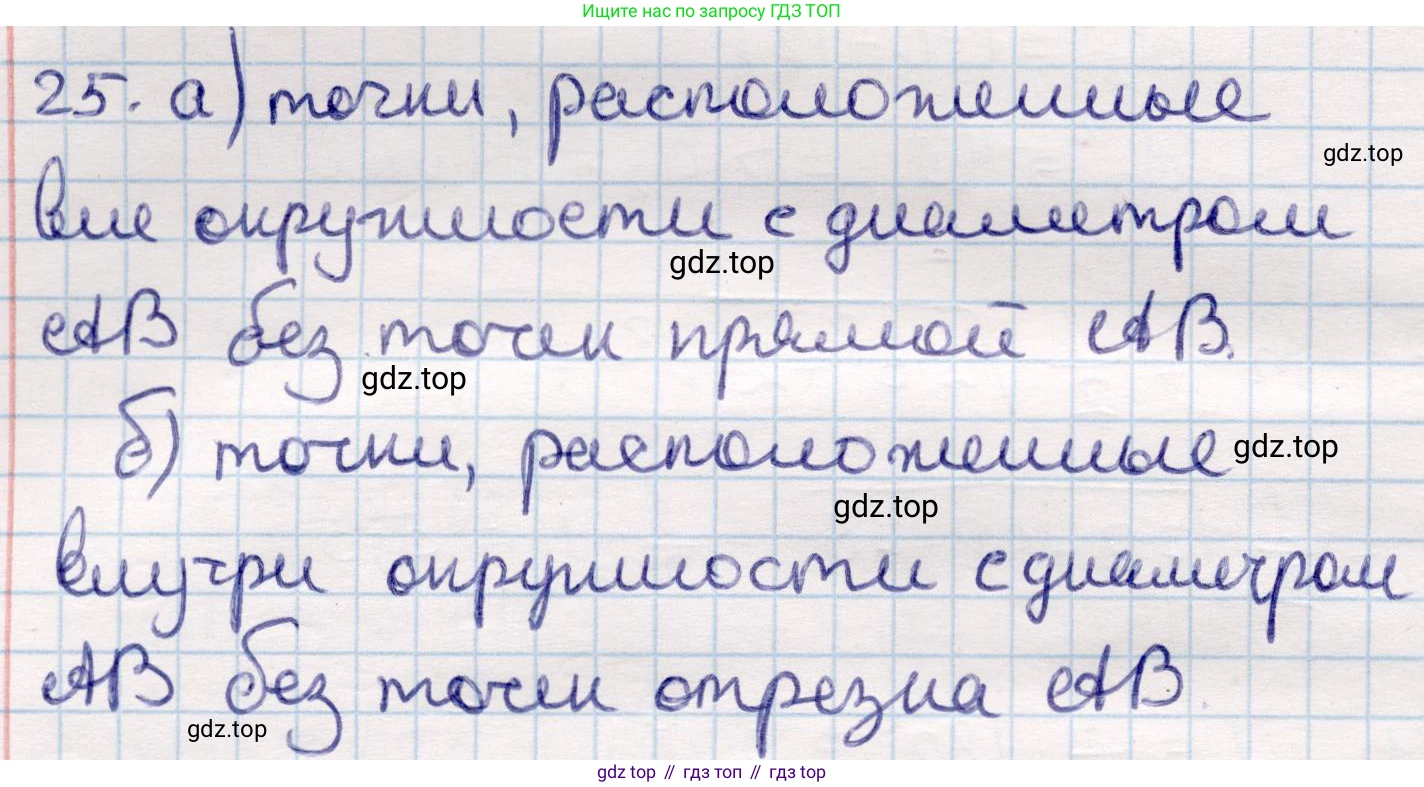 Ищите нас по запросу ГДЗ ТОП
25. а) точки, расположенные
gdz.top
вне окружности с диаметром
gdz.top
AB без точек прямой AB.
gdz.top
б) точки, расположенные
gdz.top
gdz.top
внутри окружности с диаметром
AB без точек отрезка AB.
gdz.top
gdz top // гдз топ // gdz top